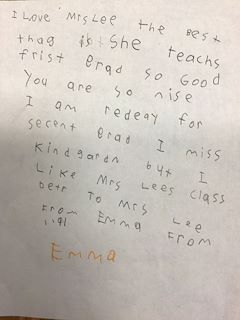 I Love Mrs Lee the Best
thag is she teachs
frist Grad so Good
You are so nise
I am redeay for
secent Grad I miss
Kindgardn but I
Like Mrs Lees class
betr To Mrs Lee
From Emma From
Emma